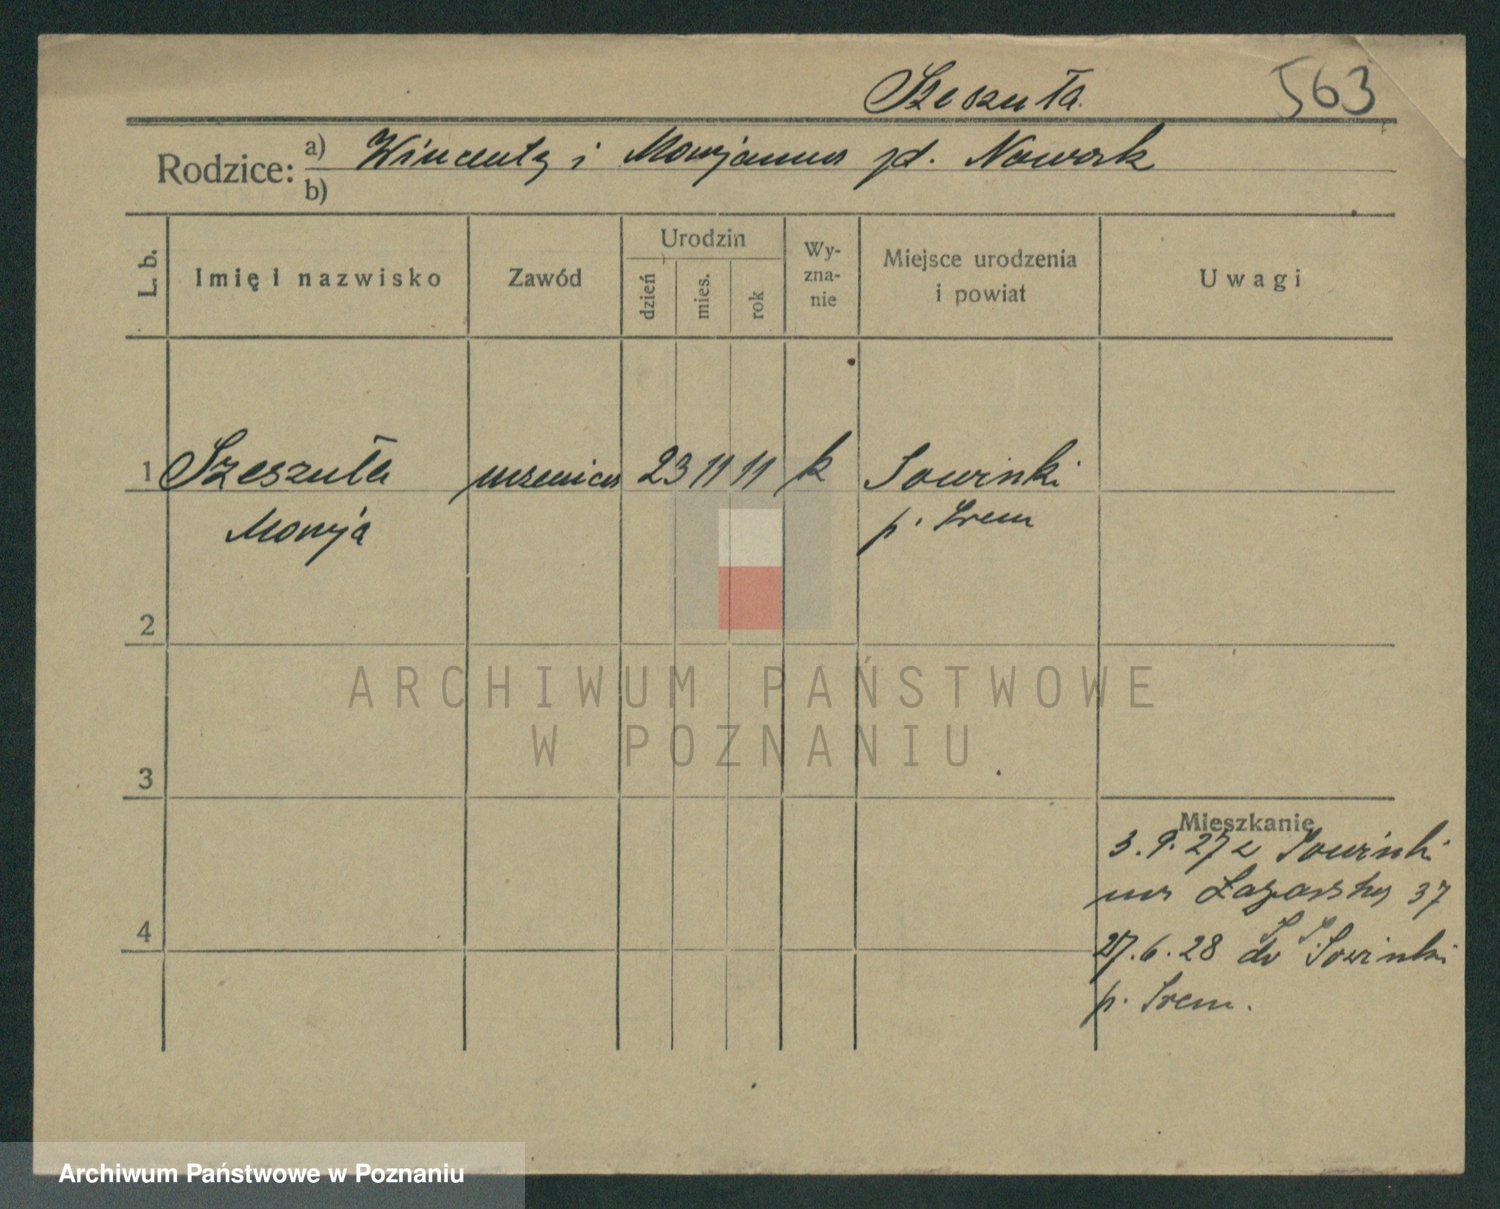 Szeszuła
563
Rodzice: a) Wincenty i Marjanna zd. Nowak
b)
L. b.
Imię i nazwisko
Zawód
Urodzin
dzień
mies.
rok
Wy-
zna-
nie
Miejsce urodzenia
i powiat
Uwagi
1 Szeszuła uczenica 23 11 11 k Sowinki
Marja p. Śrem
2
ARCHIWUM PAŃSTWOWE
W POZNANIU
3
Mieszkanie
3.9.27 z Sowinki
na Łazarską 37
4
27.6.28 do Sowinki
p. Śrem.
Archiwum Państwowe w Poznaniu